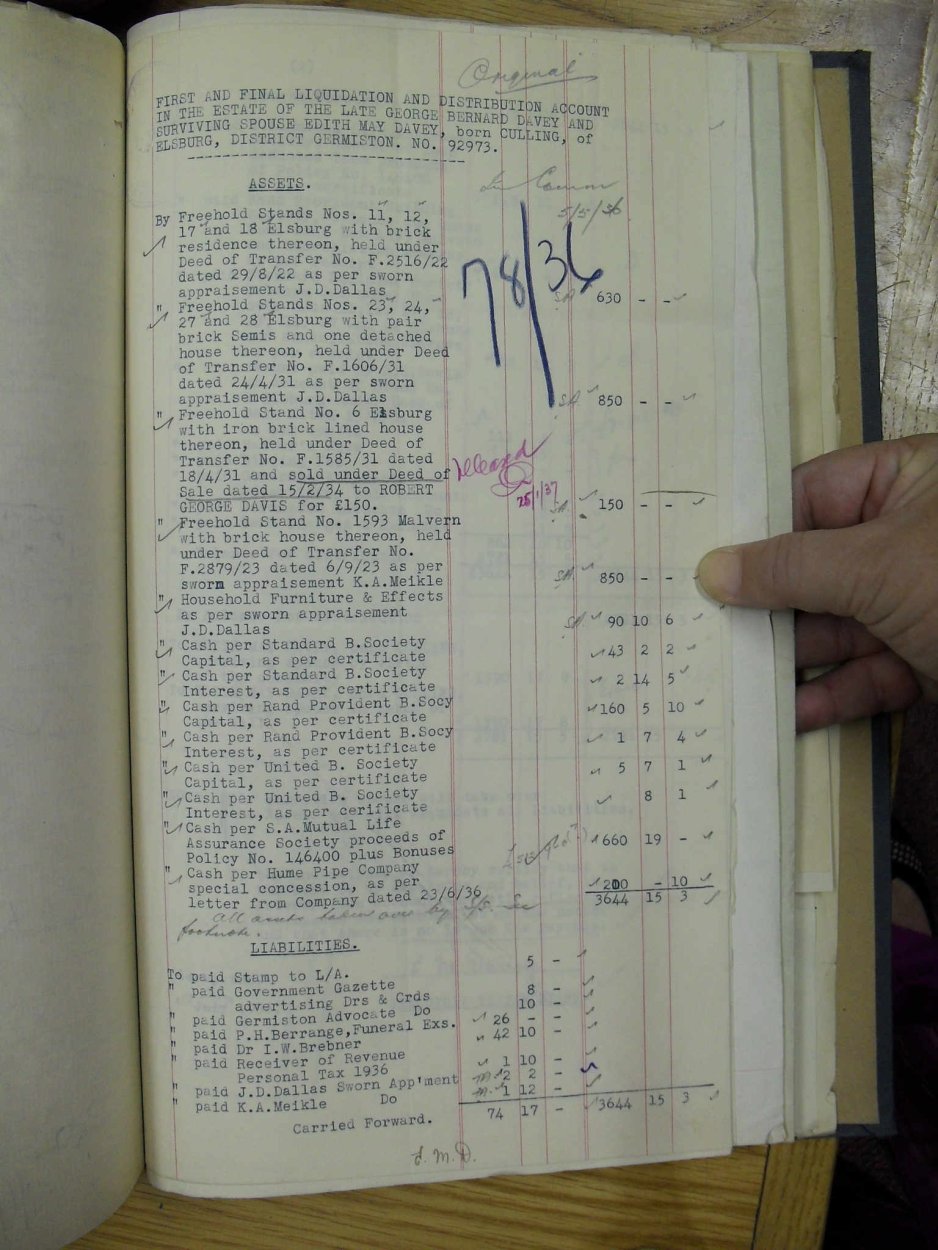 Original
FIRST AND FINAL LIQUIDATION AND DISTRIBUTION ACCOUNT
IN THE ESTATE OF THE LATE GEORGE BERNARD DAVEY AND
SURVIVING SPOUSE EDITH MAY DAVEY, born CULLING, of
ELSBURG, DISTRICT GERMISTON. NO. 92973.
ASSETS.
In Comm
5/5/36
78/36
By Freehold Stands Nos. 11, 12,
17 and 18 Elsburg with brick
residence thereon, held under
Deed of Transfer No. F.2516/22
dated 29/8/22 as per sworn
appraisement J.D.Dallas SA 630 - -
" Freehold Stands Nos. 23, 24,
27 and 28 Elsburg with pair
brick Semis and one detached
house thereon, held under Deed
of Transfer No. F.1606/31
dated 24/4/31 as per sworn
appraisement J.D.Dallas SA 850 - -
" Freehold Stand No. 6 Elsburg
with iron brick lined house
thereon, held under Deed of
Transfer No. F.1585/31 dated
18/4/31 and sold under Deed of
Sale dated 15/2/34 to ROBERT
GEORGE DAVIS for £150. SA 150 - -
25/1/37
" Freehold Stand No. 1593 Malvern
with brick house thereon, held
under Deed of Transfer No.
F.2879/23 dated 6/9/23 as per
sworn appraisement K.A.Meikle SA 850 - -
" Household Furniture & Effects
as per sworn appraisement
J.D.Dallas SA 90 10 6
" Cash per Standard B.Society
Capital, as per certificate 43 2 2
" Cash per Standard B.Society
Interest, as per certificate 2 14 5
" Cash per Rand Provident B.Socy
Capital, as per certificate 160 5 10
" Cash per Rand Provident B.Socy
Interest, as per certificate 1 7 4
" Cash per United B. Society
Capital, as per certificate 5 7 1
" Cash per United B. Society
Interest, as per cerificate 8 1
" Cash per S.A.Mutual Life
Assurance Society proceeds of
Policy No. 146400 plus Bonuses 660 19 -
" Cash per Hume Pipe Company
special concession, as per 200 - 10
letter from Company dated 23/6/36 3644 15 3
All assets taken over by S/S. See
footnote.
LIABILITIES.
To paid Stamp to L/A. 5 -
" paid Government Gazette
advertising Drs & Crds 8 -
" paid Germiston Advocate Do 10 -
" paid P.H.Berrange,Funeral Exs. 26 - -
" paid Dr I.W.Brebner 42 10 -
" paid Receiver of Revenue
Personal Tax 1936 1 10 -
" paid J.D.Dallas Sworn App'ment 2 2 -
" paid K.A.Meikle Do 1 12 -
Carried Forward. 74 17 - 3644 15 3
E.M.D.